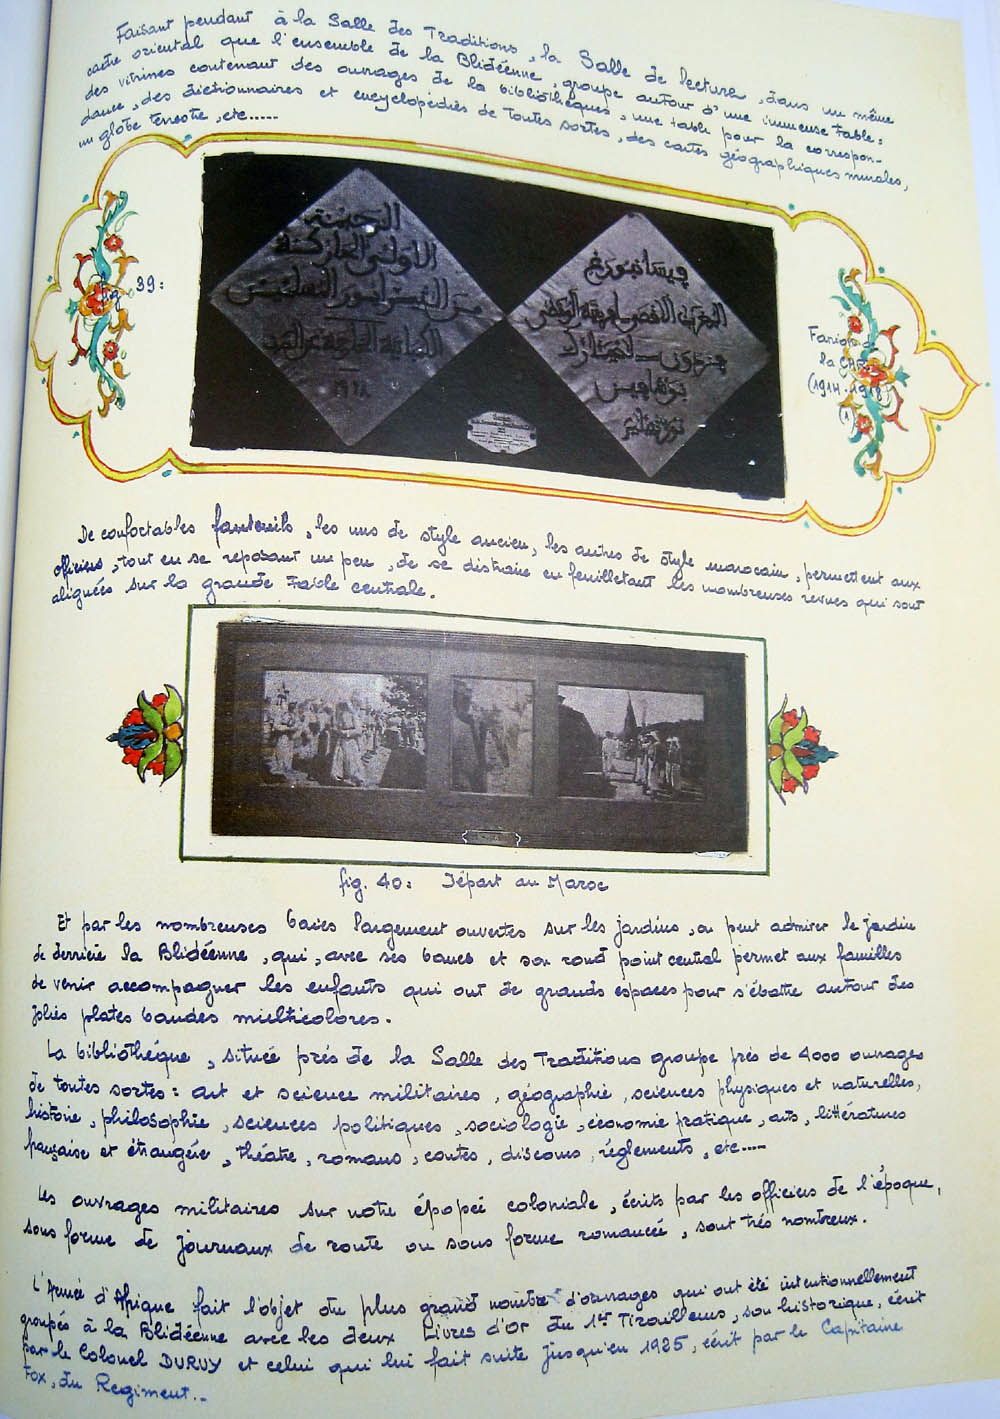 Faisant pendant à la Salle des Traditions, la Salle de lecture, dans un même
cadre oriental que l'ensemble de la Blidéenne, groupe autour d'une immense table:
des vitrines contenant des ouvrages de la bibliothèques, une table pour la correspon-
dance, des dictionnaires et encyclopédies de toutes sortes, des cartes géographiques murales,
un globe terrestre, etc.....
fig 39:
الاولى
١٩١٨
فيسانبورغ
المغرب الاقصى افريقة
Fanion de
(1914-1918)
(1)
De confortables fauteuils, les uns de style ancien, les autres de style marocain, permettent aux
officiers, tout en se reposant un peu, de se distraire en feuilletant les nombreuses revues qui sont
alignées sur la grande table centrale.
fig. 40: Départ au Maroc
Et par les nombreuses baies largement ouvertes sur les jardins, on peut admirer le jardin
de derrière la Blidéenne, qui, avec ses bancs et son rond point central permet aux familles
de venir accompagner les enfants qui ont de grands espaces pour s'ébattre autour des
jolies plates bandes multicolores.
La bibliothèque, située près de la Salle des Traditions groupe près de 4000 ouvrages
de toutes sortes: art et science militaires, géographie, sciences physiques et naturelles,
histoire, philosophie, sciences politiques, sociologie, économie pratique, arts, littératures
française et étrangère, théatre, romans, contes, discours, réglements, etc.....
Les ouvrages militaires sur notre épopée coloniale, écrits par les officiers de l'époque,
sous forme de journaux de route ou sous forme romancée, sont très nombreux.
L'Armée d'Afrique fait l'objet du plus grand nombre d'ouvrages qui ont été intentionnellement
groupés à la Blidéenne avec les deux Livres d'Or du 1er Tirailleurs, son historique, écrit
par le Colonel DURUY et celui qui lui fait suite jusqu'en 1925, écrit par le Capitaine
Fox, du Regiment..